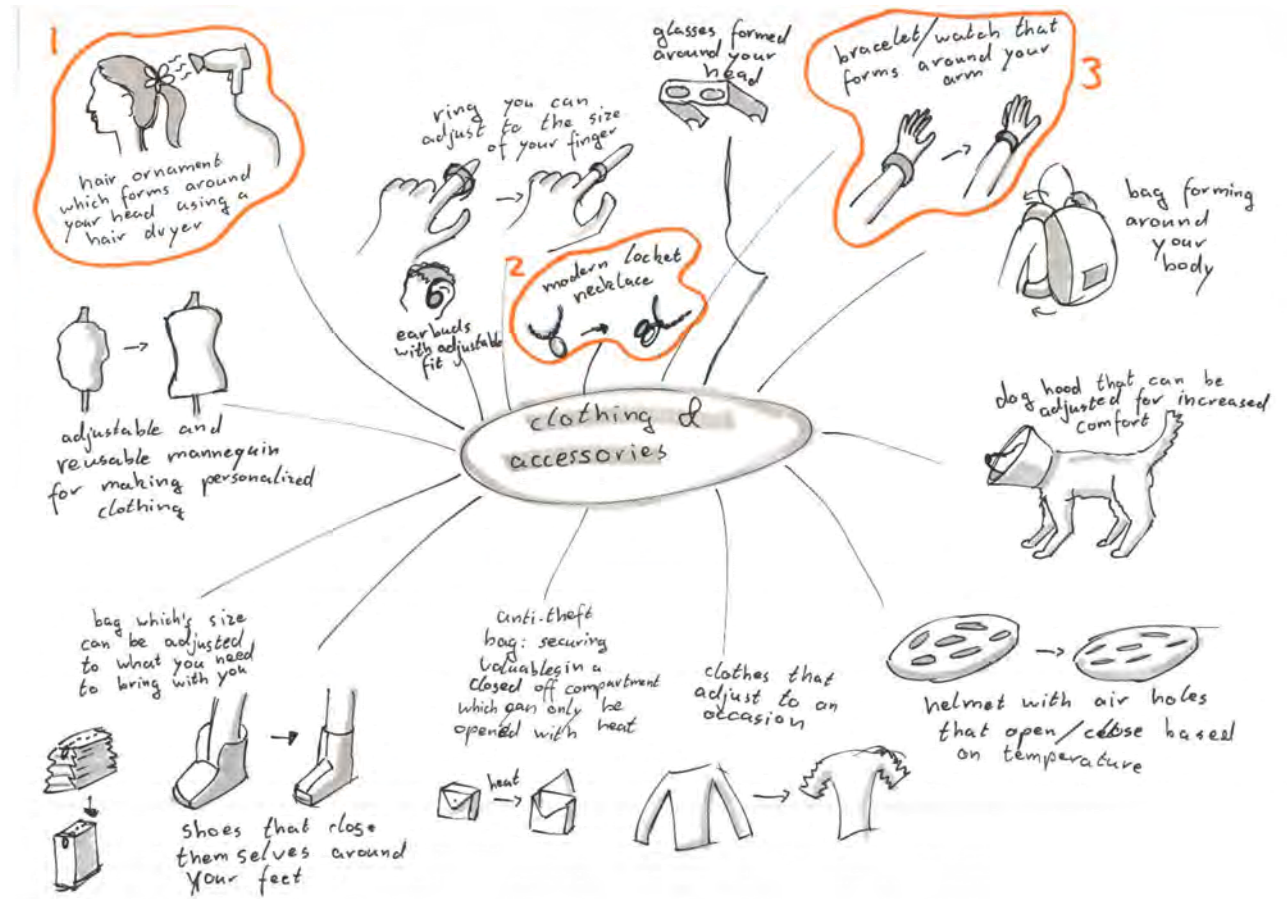 1
hair ornament
which forms around
your head using a
hair dryer
ring you can
adjust to the size
of your finger
glasses formed
around your
head
bracelet/watch that
forms around your
arm
3
bag forming
around
your
body
2
modern locket
necklace
earbuds
with adjustable
fit
adjustable and
reusable mannequin
for making personalized
clothing
clothing &
accessories
dog hood that can be
adjusted for increased
comfort
bag which's size
can be adjusted
to what you need
to bring with you
shoes that close
themselves around
your feet
anti-theft
bag: securing
valuables in a
closed off compartment
which can only be
opened with heat
heat
clothes that
adjust to an
occasion
helmet with air holes
that open/close based
on temperature